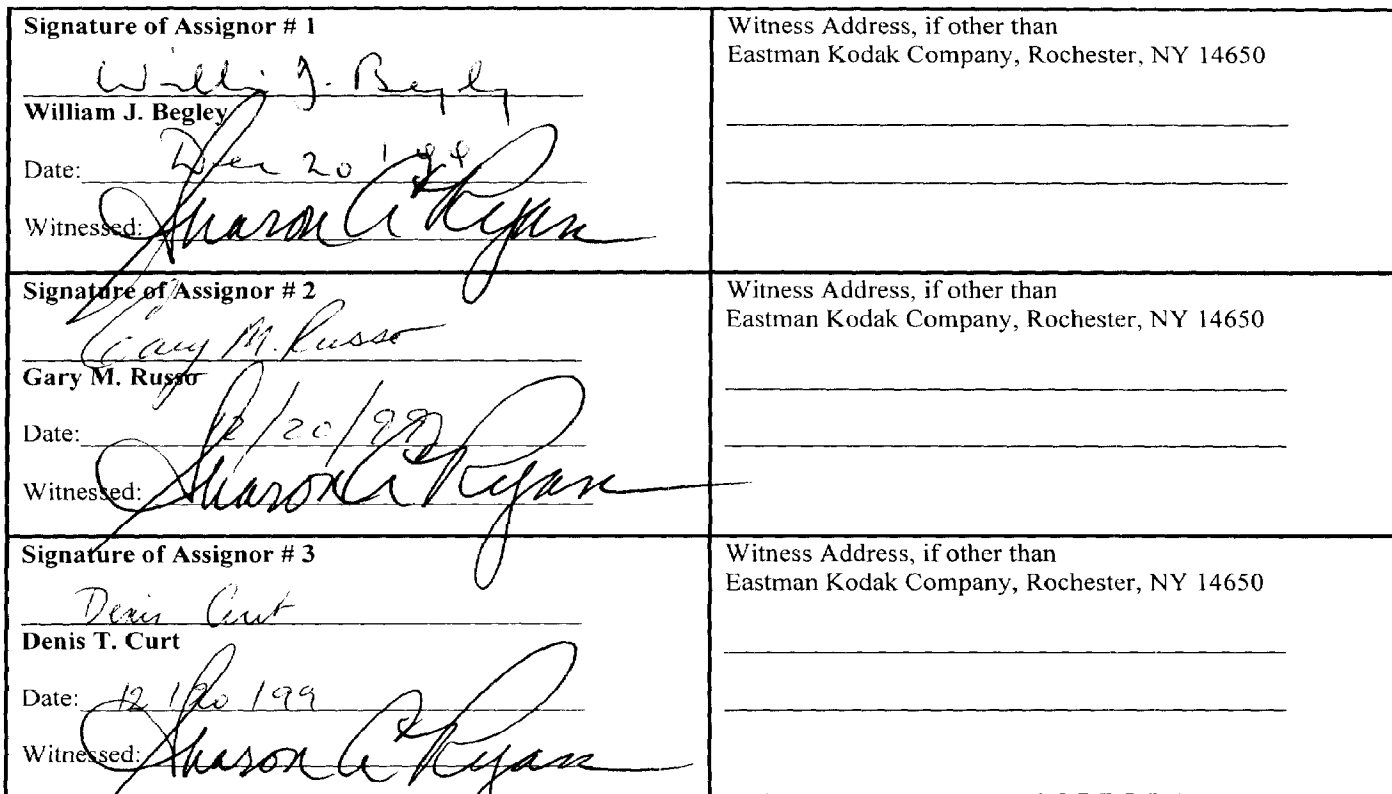 Signature of Assignor # 1
William J. Begley
William J. Begley
Date: 20 '99
Witnessed: Sharon A Ryan
Witness Address, if other than
Eastman Kodak Company, Rochester, NY 14650
Signature of Assignor # 2
Gary M. Russo
Gary M. Russo
Date: 12/20/99
Witnessed: Sharon A Ryan
Witness Address, if other than
Eastman Kodak Company, Rochester, NY 14650
Signature of Assignor # 3
Denis Curt
Denis T. Curt
Date: 12/20/99
Witnessed: Sharon A Ryan
Witness Address, if other than
Eastman Kodak Company, Rochester, NY 14650